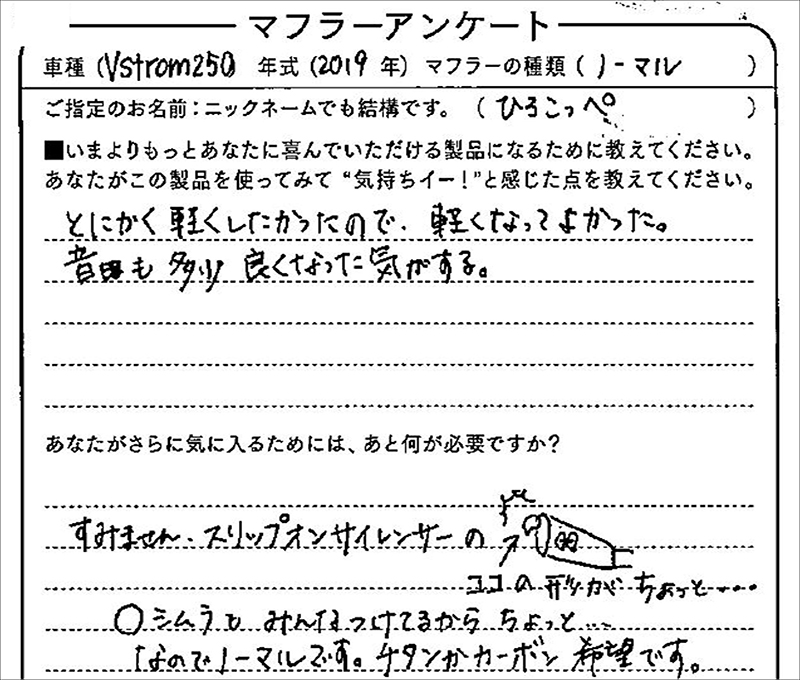 マフラーアンケート
車種（Vstrom250）年式（2019 年）マフラーの種類（ノーマル）
ご指定のお名前：ニックネームでも結構です。（ひろこっぺ）
■いまよりもっとあなたに喜んでいただける製品になるために教えてください。
あなたがこの製品を使ってみて“気持ちイー！”と感じた点を教えてください。
とにかく軽くしたかったので、軽くなってよかった。
音も 多少 良くなった気がする。
あなたがさらに気に入るためには、あと何が必要ですか？
すみません、スリップオンサイレンサーの
ココの形がちょっと・・・・
〇シムラも みんなつけてるから ちょっと…
なのでノーマルです。チタンかカーボン 希望です。